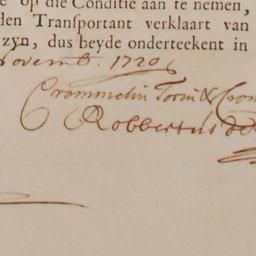 op die Conditie aan te nemen,
den Transportant verklaart van
zyn, dus beyde onderteekent in
Novemb. 1720
Crommelin Torin & Coo
Robbertus de